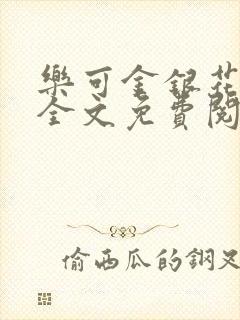 樂可金銀花
全文免費閱
偷西瓜的鋼叉